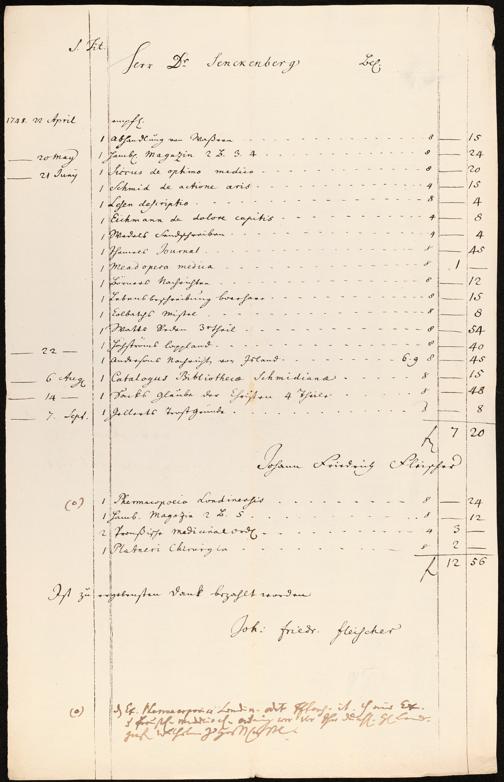 S. Tit.
Herr Dr Senckenberg Bel.
1748. 22 April empf.
1 Abhandlung von 8 — 15
20 May 1 Hamb. Magazin 2 B. 3. 4 8 — 24
21 Juny 1 de optimo medico 8 — 20
1 Schmid de actione aris 4 — 15
1 descriptio 8 4
1 Eichmann de dolore capitis 4 — 8
1 Wedels Sendschreiben 4 — 4
1 Journal 8 — 45
1 Mead opera medica 8 1 —
1 Börners Nachrichten 8 — 12
1 Lebensbeschreibung boerhave 8 — 15
1 Colbatchs Mistel 8 — 8
1 Watts Reden 3 Theil 8 — 54
1 Högströms Lappland 8 — 40
22 — 1 Andersons Nachricht von Island 6. 9 8 — 45
6 Aug 1 Catalogus Bibliotheca Schmidiana 8 — 15
14 — 1 Sacks Glaube der Christen 4 Theile 8 — 48
7. Sept. 1 Gellerts Trostgründe 8 — 8
f 7 20
Johann Friedrich Fleischer
(o) 1 Pharmacopoeia Londinensis 8 — 24
1 Hamb. Magazin 2 B. 5 8 — 12
2 medicinal 4 3 —
1 Platneri Chirurgia 8 2 —
f 12 56
Ist zu ergebensten Dank bezahlt worden
Joh: Friedr. Fleischer
(o) Ex. Pharmacopoeia London.